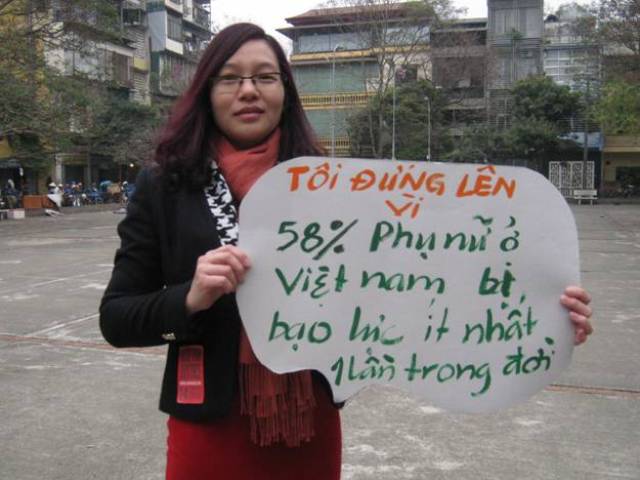 TÔI ĐỨNG LÊN
Vì
58% Phụ nữ ở
Việt nam bị
bạo lực ít nhất
1 lần trong đời